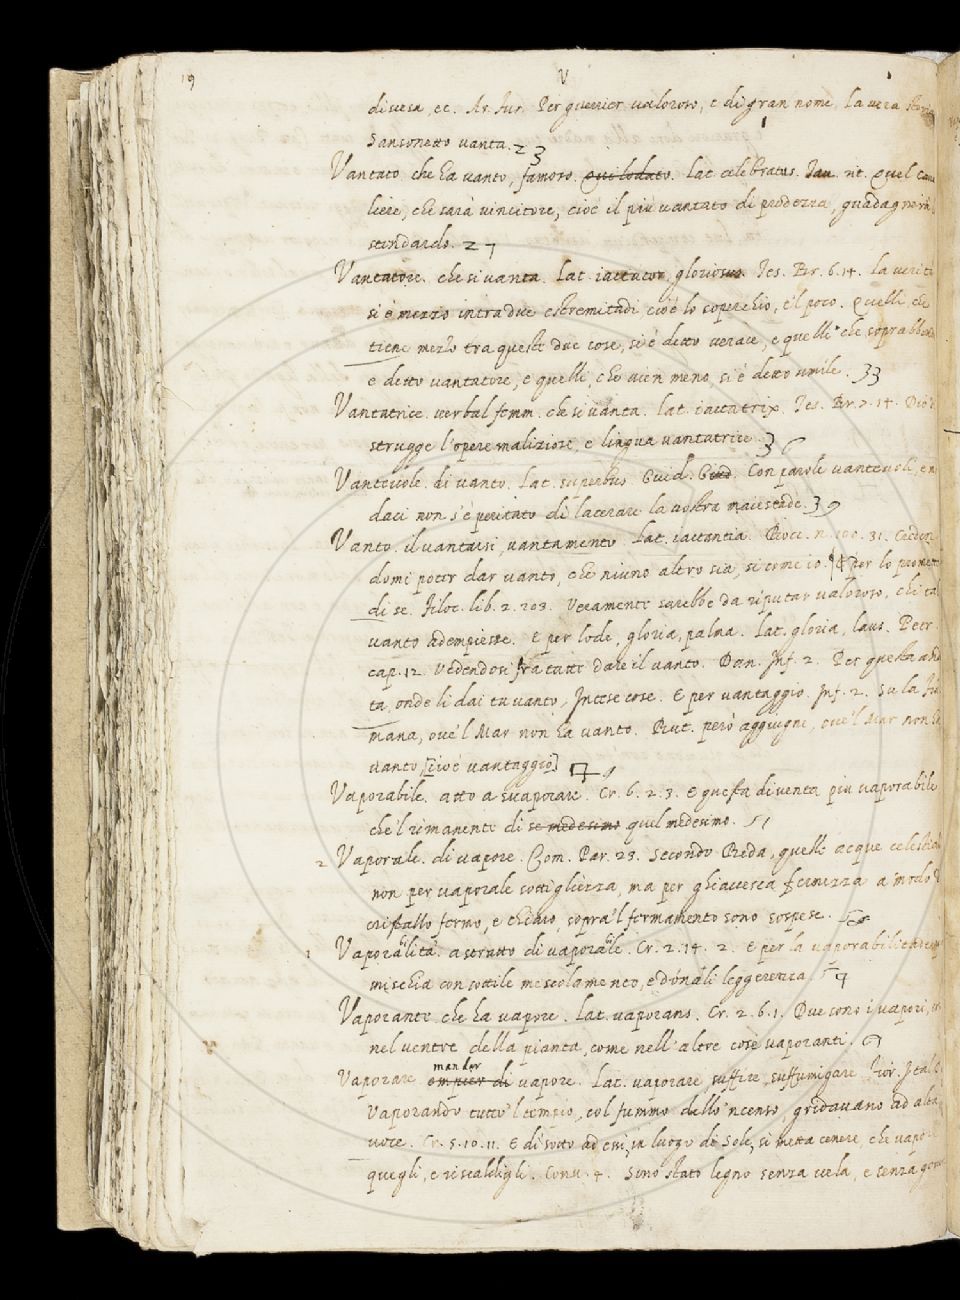 19
V
di sesa, ec. Ar. Fur. Per guerrier valoroso, e di gran nome, la vera
Sansonetto vanta. 23
Vantato che ha vanto, famoso. Lat. celebratus. Tav. rit. Quel cava
liere, che sarà vincitore, cioè il più vantato di prodezza, guadagnerà
stendardo. 27
Vantatore. che si vanta. Lat. iactator, gloriosus. Tes. Br. 6. 14. La verità
si è mezzo intra due estremitadi cioè lo soperchio, e'l poco. Quelli, che
tiene mezzo tra queste due cose, si è detto verace, e quelle che soprabbonda
è detto vantatore, e quelli, che vien meno, si è detto umile. 33
Vantatrice. verbal femm. che si vanta. Lat. iactatrix. Tes. Br. 7. 14. Dio
strugge l'opere maliziose, e lingua vantatrice. 36
Vantevole. di vanto. Lat. superbus. Guid. Giud. Con parole vantevoli, e
daci non s'è peritato di lacerare la vostra maiestade. 39
Vanto. il vantarsi, vantamento. Lat. iactantia. Bocc. n. 100. 31. Creden
domi poter dar vanto, che niuno altro sia, si come io. E per lo promett
di se. Filoc. lib. 2. 203. Veramente sarebbe da riputar valoroso, chi tal
vanto adempiesse. E per lode, gloria, palma. Lat. gloria, laus. Petr.
cap. 12. Vedendosi fra tutti dare il vanto. Dan. Inf. 2. Per questa anda
ta, onde li dai tu vanto, Intese cose. E per vantaggio. Inf. 2. Su la fiu
mana, ove'l Mar non ha vanto. But. però aggiugne, ove'l Mar non ha
vanto [cioè vantaggio] 49
Vaporabile. atto a svaporare. Cr. 6. 2. 3. E questa diventa più vaporabile
che'l rimanente di se medesimo quel medesimo. 51
2 Vaporale. di vapore. Com. Par. 23. Secondo Beda, quelle acque celestiali
non per vaporale sottigliezza, ma per ghiacesca fermezza a modo
cristallo fermo, e chiaro, sopra'l fermamento sono sospese.
1 Vaporalità. astratto di vaporale. Cr. 2. 14. 2. E per la vaporabilitade
mischia con sottile mescolamento, e dónali leggerezza.
Vaporante che ha vapore. Lat. vaporans. Cr. 2. 6. 1. Due sono i vapori,
nel ventre della pianta, come nell'altre cose vaporanti.
mandar
Vaporare empier di vapore. Lat. vaporare, suffire, suffumigare. Fior. Ital.
Vaporando tutto'l tempio, col fummo dello 'ncenso, gridavano ad alta
voce. Cr. 5. 10. 11. E di sotto ad essi, in luogo di Sole, si metta cenere, che vapori
quegli, e riscaldigli. Conv. 4. Sono stato legno senza vela, e senza